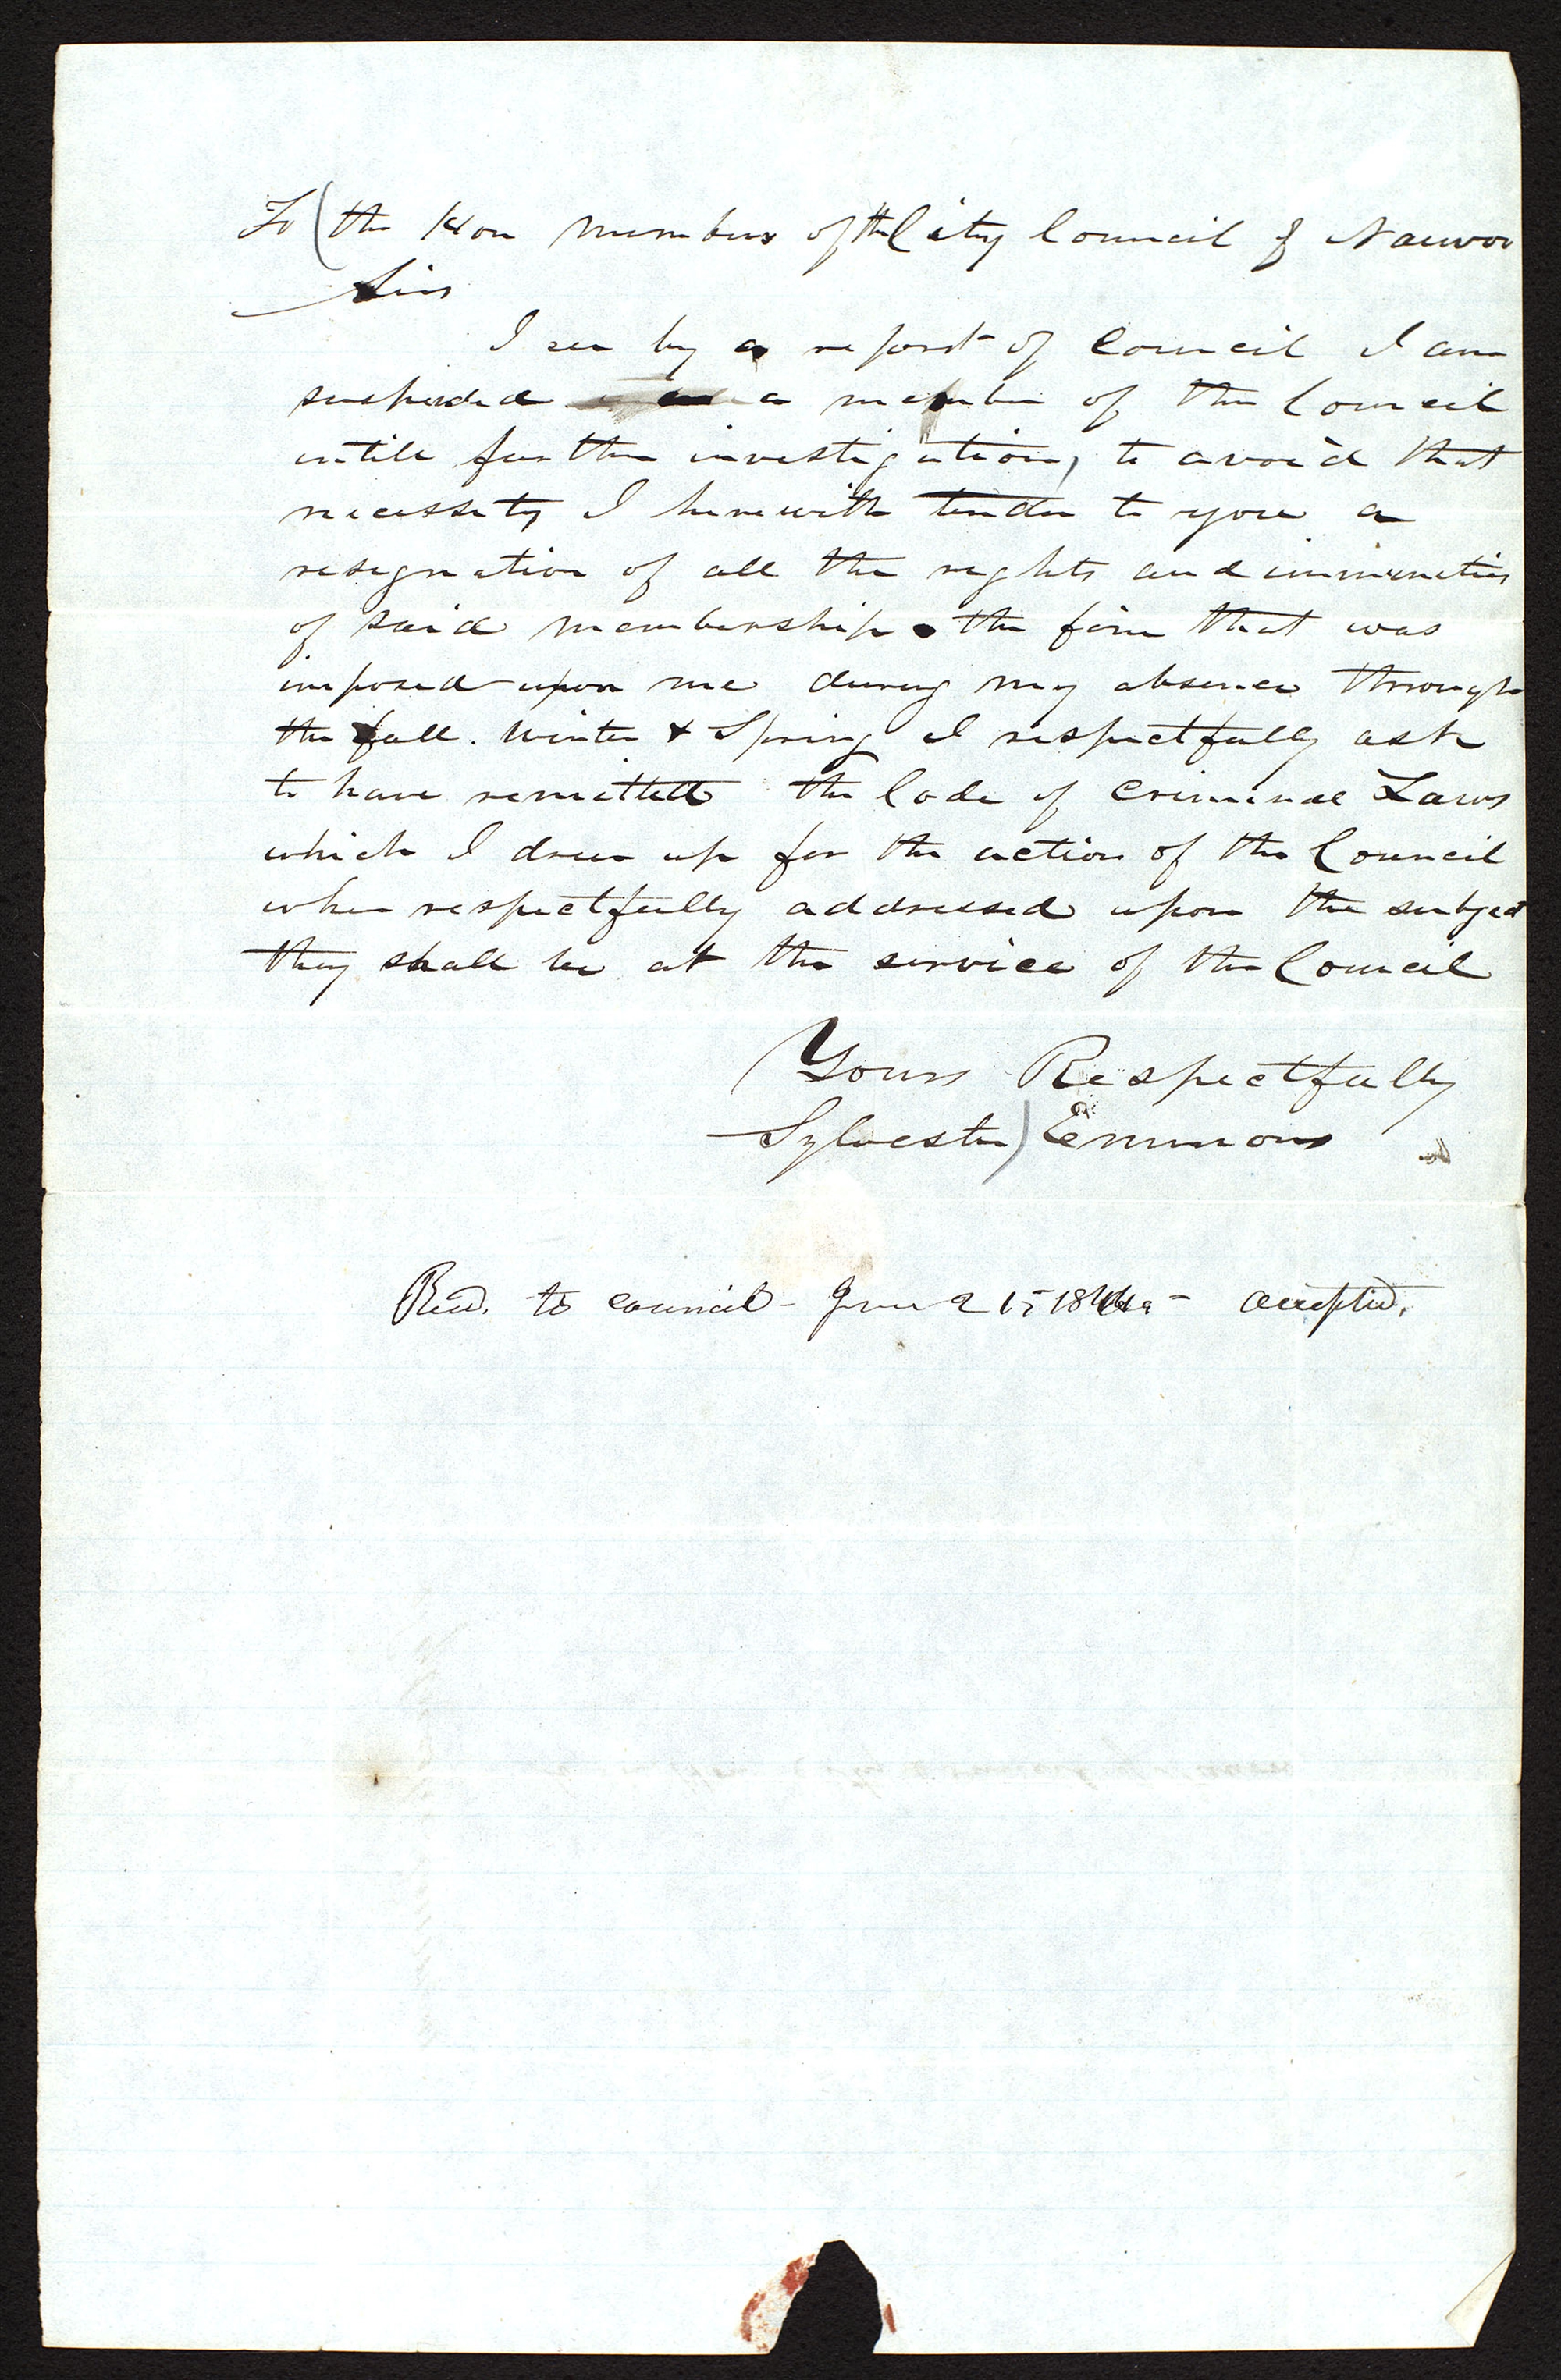 To the Hon members of the City Council of Nauvoo
Sirs
I see by a report of Council I am
suspended as a member of the Council
untill further investigation, to avoid that
necessity I herewith tender to you a
resignation of all the rights and immunities
of said membership. the fine that was
imposed upon me during my absence through
the fall. Winter & Spring I respectfully ask
to have remitted the Code of Criminal Laws
which I drew up for the action of the Council
when respectfully addressed upon the subject
they shall be at the service of the Council
Yours Respectfully
Sylvester Emmons
to council - June accepted.